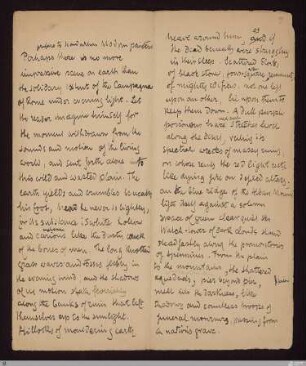 Perhaps there is no more
impressive scene on earth than
the solitary extent of the Campagna
of Rome under evening light. Let
the reader imagine himself for
the moment withdrawn from the
sounds and motion of the living
world, and sent forth alone into
this wild and wasted plain. The
earth yields and crumbles beneath
his foot, tread he never so lightly,
for its substance is white hollow
and carious like the dusty wreck
of the bones of men. The long knotted
grass waves and tosses feebly in
the evening wind, and the shadows
of its motion shake feverishly
along the banks of ruin that lift
themselves up to the sunlight.
Hillocks of mouldering earth
heave around him, as if
the dead beneath were struggling
in their sleep. Scattered blocks
of black stone, foursquare remnants
of mighty edifices, not one left
upon another, lie upon them to
keep them down. A dull purple
poisonous haze stretches
along the desert, veiling its
spectral wrecks of massy ruins,
on whose rents the red light rests
like dying fire on defiled altars,
the blue ridge of the Alban Mount
lifts itself against a solemn
space of green clear quiet sky
Watch towers of dark clouds stand
steadfastly along the promontories
of the Apennines. From the plain
to the mountains, the shattered
aqueducts, pier beyond pier,
melt into the darkness, like
shadowy and countless troops of
funeral mourners, passing from
a nation's grave.